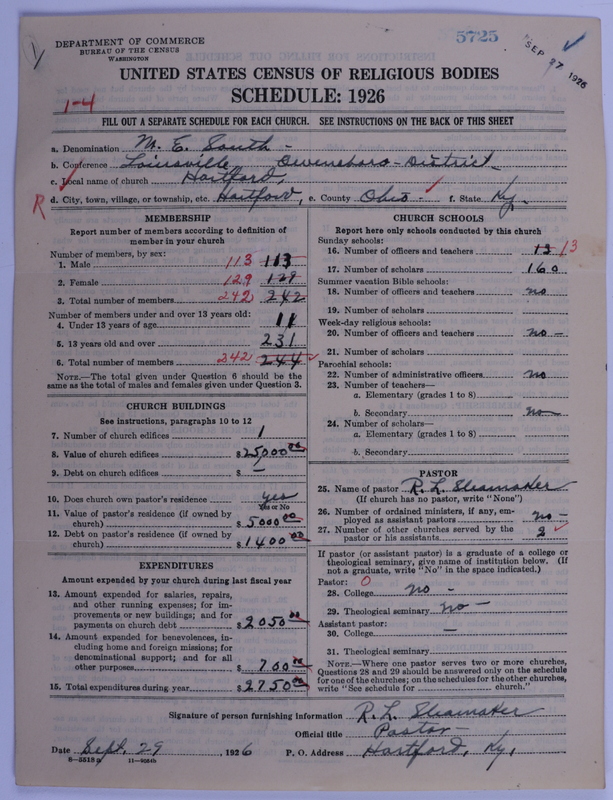 DEPARTMENT OF COMMERCE
BUREAU OF THE CENSUS
WASHINGTON
5725
SEP 27 1926
UNITED STATES CENSUS OF RELIGIOUS BODIES
SCHEDULE: 1926
1-4
FILL OUT A SEPARATE SCHEDULE FOR EACH CHURCH. SEE INSTRUCTIONS ON THE BACK OF THIS SHEET
a. Denomination M. E. South -
b. Conference Louisville Owensboro-District
c. Local name of church Hartford,
R d. City, town, village, or township, etc. Hartford, e. County Ohio - f. State Ky.
MEMBERSHIP
Report number of members according to definition of member in your church
Number of members, by sex:
1. Male 113 113
2. Female 129 129
3. Total number of members 242 242
Number of members under and over 13 years old:
4. Under 13 years of age 11
5. 13 years old and over 231
6. Total number of members 242 244
NOTE.—The total given under Question 6 should be the same as the total of males and females given under Question 3.
CHURCH BUILDINGS
See instructions, paragraphs 10 to 12
7. Number of church edifices 1
8. Value of church edifices $25000.00
9. Debt on church edifices $ —
10. Does church own pastor's residence yes
Yes or No
11. Value of pastor's residence (if owned by church) $5000.00
12. Debt on pastor's residence (if owned by church) $1400.00
EXPENDITURES
Amount expended by your church during last fiscal year
13. Amount expended for salaries, repairs, and other running expenses; for improvements or new buildings; and for payments on church debt $2050.00
14. Amount expended for benevolences, including home and foreign missions; for denominational support; and for all other purposes $700.00
15. Total expenditures during year $2750.00
CHURCH SCHOOLS
Report here only schools conducted by this church
Sunday schools:
16. Number of officers and teachers 13 13
17. Number of scholars 160
Summer vacation Bible schools:
18. Number of officers and teachers no
19. Number of scholars
Week-day religious schools:
20. Number of officers and teachers no -
21. Number of scholars
Parochial schools:
22. Number of administrative officers no
23. Number of teachers—
a. Elementary (grades 1 to 8)
b. Secondary no
24. Number of scholars—
a. Elementary (grades 1 to 8)
b. Secondary
PASTOR
25. Name of pastor R. L. Sleamaker
(If church has no pastor, write "None")
26. Number of ordained ministers, if any, employed as assistant pastors no -
27. Number of other churches served by the pastor or his assistants 2
If pastor (or assistant pastor) is a graduate of a college or theological seminary, give name of institution below. (If not a graduate, write "No" in the space indicated.)
Pastor: 0
28. College no -
29. Theological seminary no -
Assistant pastor:
30. College —
31. Theological seminary
NOTE.—Where one pastor serves two or more churches, Questions 28 and 29 should be answered only on the schedule for one of the churches; on the schedules for the other churches, write "See schedule for church."
Signature of person furnishing information R. L. Sleamaker
Official title Pastor
Date Sept. 29, 1926 P. O. Address Hartford, Ky,